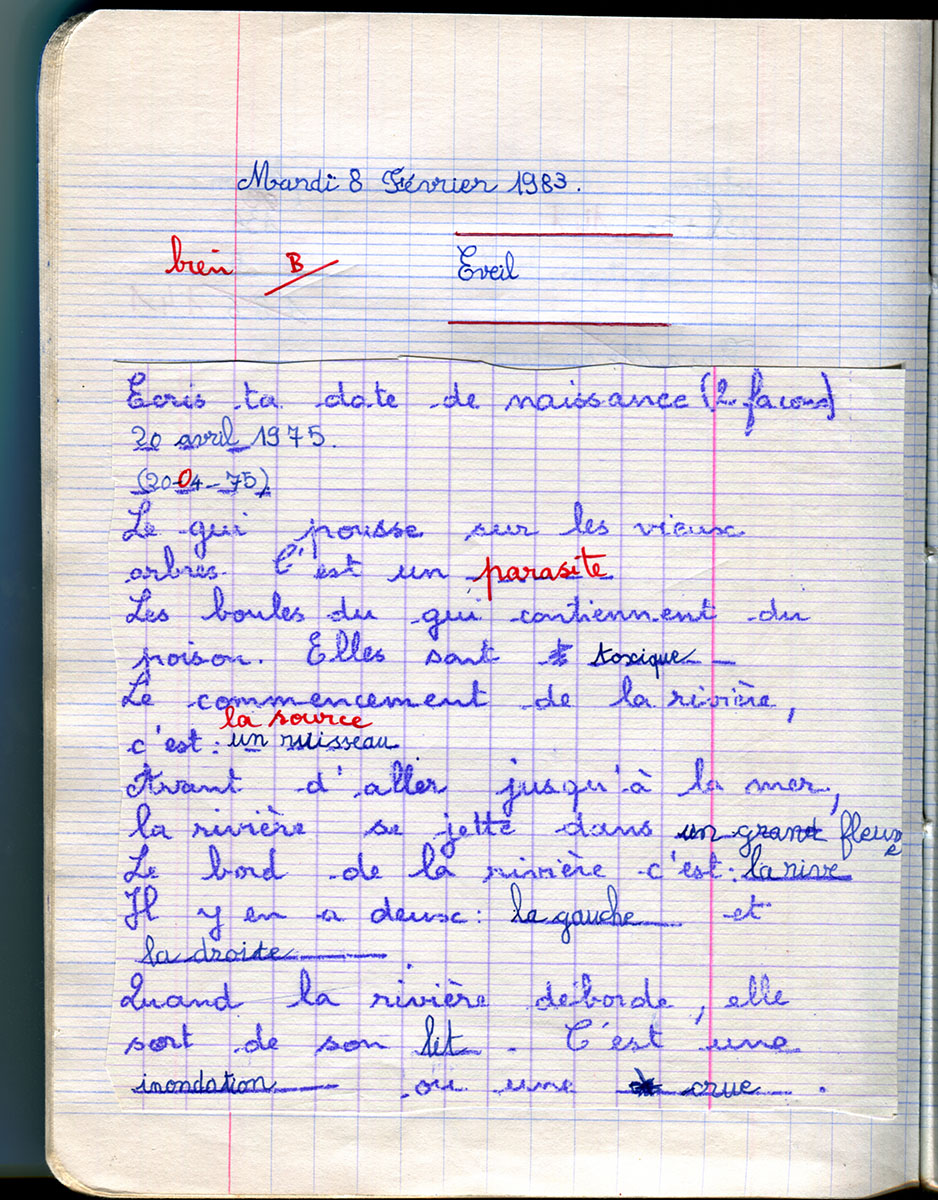 Mardi 8 Février 1983.
bien B Eveil
Ecris ta date de naissance (2 facons)
20 avril 1975.
(20-04-75)
Le gui pousse sur les vieux
arbres. C'est un parasite
Les boules du gui contiennent du
poison. Elles sont toxique
Le commencement de la rivière,
la source
c'est : un ruisseau
Avant d'aller jusqu'à la mer,
la rivière se jette dans un grand fleuve
Le bord de la rivière c'est : la rive
Il y en a deux : la gauche et
la droite
Quand la rivière déborde, elle
sort de son lit. C'est une
inondation ou une crue.